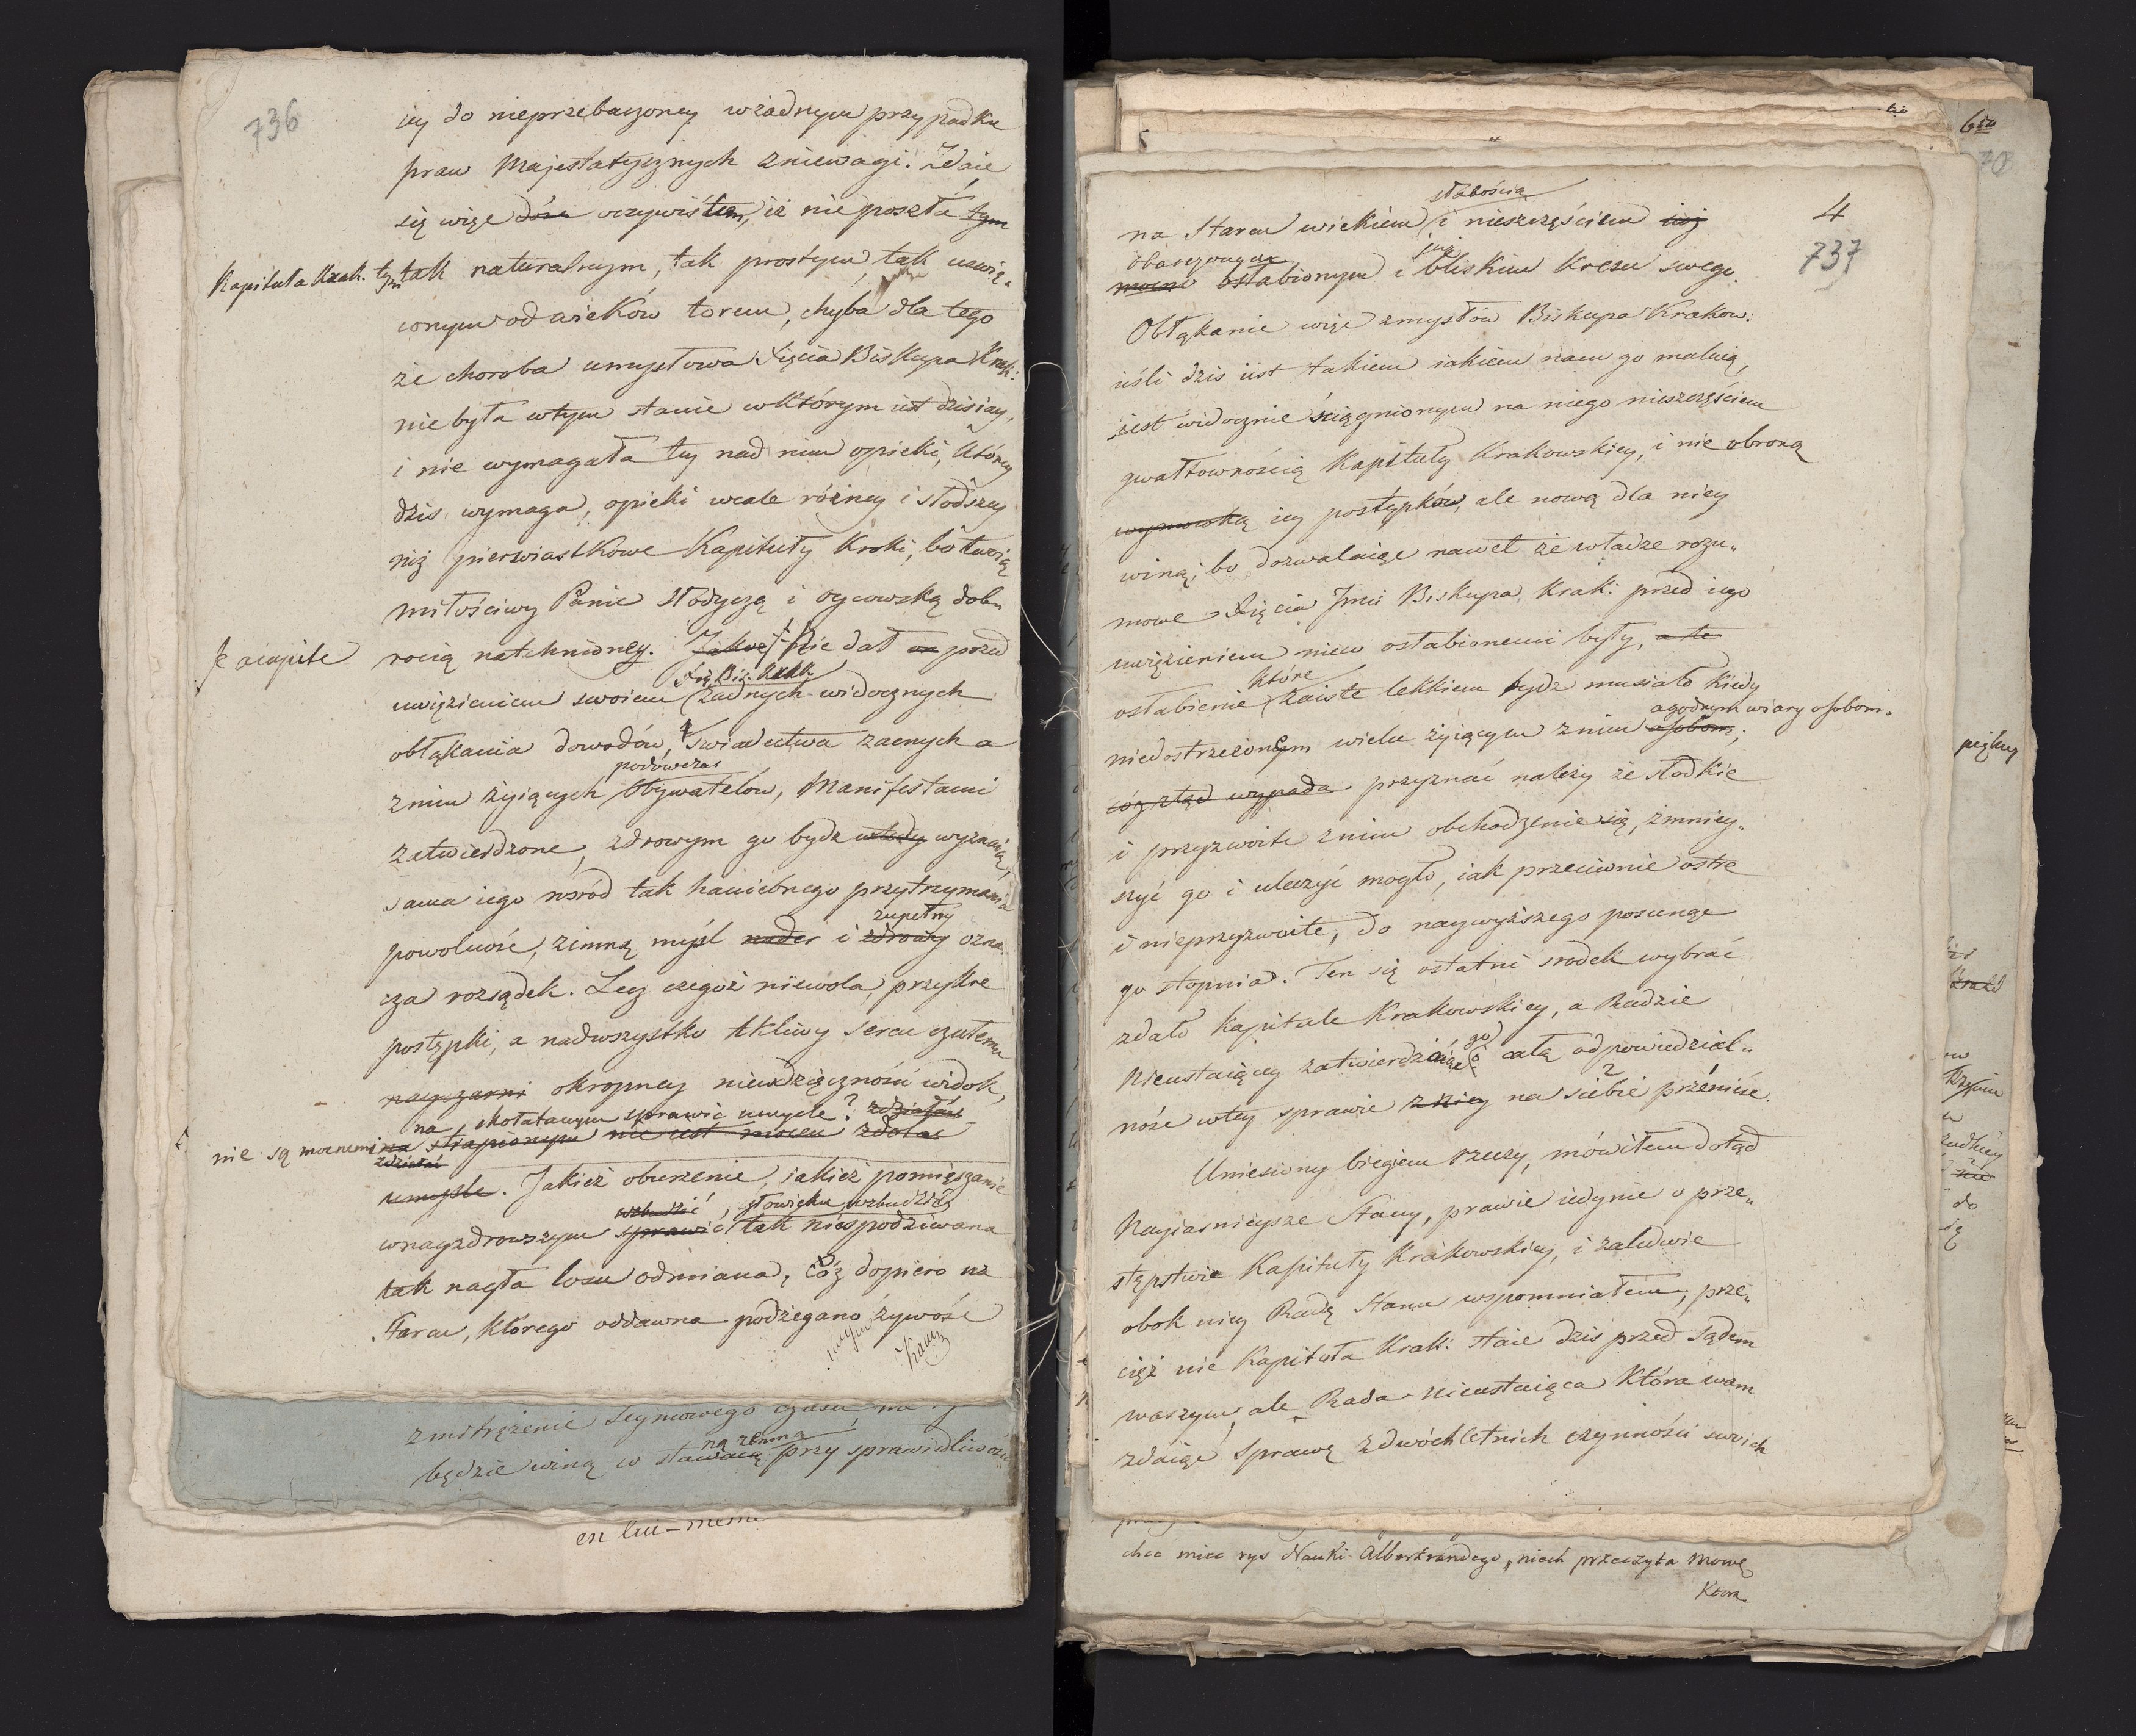 736
iey do nieprzebaczoney w żadnym przypadku
praw Majestatycznych zniewagi. Zdaie
się więc oczywistem, iż nie poszła tym
Kapituła Krak. tym tak naturalnym, tak prostym, tak uświę„
conym od wieków torem, chyba dla tego
że choroba umysłowa Xięcia Biskupa Krak:
nie była w tym stanie w którym iest dzisiay,
i nie wymagała tey nad nim opieki, którey
dziś wymaga, opieki wcale różney i słodszey
niż pierwiastkowe Kapituły kroki, bo twoią
miłościwy Panie słodyczą i oycowską dob„
rocią natchnioney. Nie dał on przed
a capite
Xią. Bis. Krak.
uwięzieniem swoiem żadnych widocznych
obłąkania dowodów, świadectwa zacnych a
podówczas
z nim żyiących Obywatelów, Manifestami
zatwierdzone, zdrowym go bydz wtedy wyznaią,
sama iego wśród tak haniebnego przytrzymania
zupełny
powolność, zimną myśl nader i zdrowy ozna„
cza rozsądek. Lecz czegoż niewola, przykre
postępki, a nadwszystko tkliwy sercu czułemu
nayczarni okropney niewdzięczności widok,
na skołatanym sprawić umyśle? zdziałać
nie są mocnemi na strapionym nie iest mocen zdołać
zdziałać
umyśle. Jakież oburzenie, iakież pomięszanie
wzbudzić, słowieku wzbudzić
w nayzdrowszym sprawić tak niespodziewana
tak nagła losu odmiana, cóż dopiero na
starcu, którego oddawna podżegano żywość
zmitrężenie Seymowego czasu, na
na zemną
będzie winą w stawacą przy sprawiedliwości
4
737
słabością
na starcu wiekiem i nieszczęściem iuż
obarczonym
iuż
mocno osłabionym i bliskim kresu swego.
Obłąkanie więc zmysłów Biskupa Krakow:
ieśli dziś iist takiem iakiem nam go maluią,
iest widocznie ściągnionym na niego nieszczęściem
gwałtownością Kapituły Krakowskiey, i nie obroną
wymówką iey postępków, ale nową dla niey
winą; bo dozwalaiąc nawet że władze rozu„
mowe Xięcia Jmci Biskupa Krak: przed iego
uwięzieniem nieco osłabionemi były, a te
które
osłabienie zaiste lekkiem bydz musiało kiedy
a godnym wiary osobom.
niedostrzeżonem wielu żyiącym z nim osobom;
cóż ztąd wypada przyznać należy że słodkie
i przyzwoite z nim obchodzenie się, zmniey„
szyć go i uleczyć mogło, iak przeciwnie ostre
i nieprzyzwoite, do naywyższego posunąc
go stopnia. Ten się ostatni srodek wybrać
zdało Kapitule Krakowskiey, a Radzie
go
Nieustaiącey zatwierdzaiąc i całą odpowiedzial„
ność w tey sprawie z niey na siebie przenieść.
Uniesiony biegiem rzeczy, mówiłem dotąd
Nayiaśnieysze Stany, prawie iedynie o prze„
stępstwie Kapituły Krakowskiey, i zaledwie
obok niey Radę Stanu wspomniałem, prze„
cięż nie Kapituła Krak: staie dziś przed sądem
waszym, ale Rada Nieustaiąca która wam
zdaiąc sprawę z dwóchletnich czynności swoich
chce miec rys Nauki Albertrandego, niech przeczyta mowę
Ktora